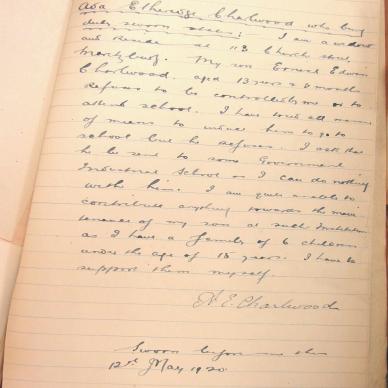 Ada Etheredge Charlwood who being
duly sworn states: I am a widow
and reside at 113 Church Street,
Maritzburg. My son Ernest Edwin
Charlwood, aged 13 years & 8 months
refuses to be controlled by me or to
attend school. I have tried all manner
of means to induce him to go to
school but he refuses. I ask that
he be sent to some Government
Industrial School as I can do nothing
with him. I am quite unable to
contribute anything towards the main-
tenance of my son at such Institution
as I have a family of 6 children
under the age of 15 years. I have to
support them myself.
A. E. Charlwood
Sworn before me this
12th May 1920